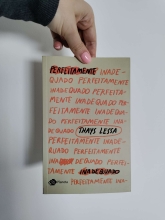 PERFEITAMENTE INADE-
QUADO PERFEITAMENTE
INADEQUADO PERFEITA-
MENTE INADEQUADO PER-
FEITAMENTE INADEQUA-
DO PERFEITAMENTE INA-
DEQUADO THAYS LESSA
PERFEITAMENTE INADE-
QUADO PERFEITAMENTE
INADEQUADO PERFEI-
TAMENTE INADEQUADO
PERFEITAMENTE INA-